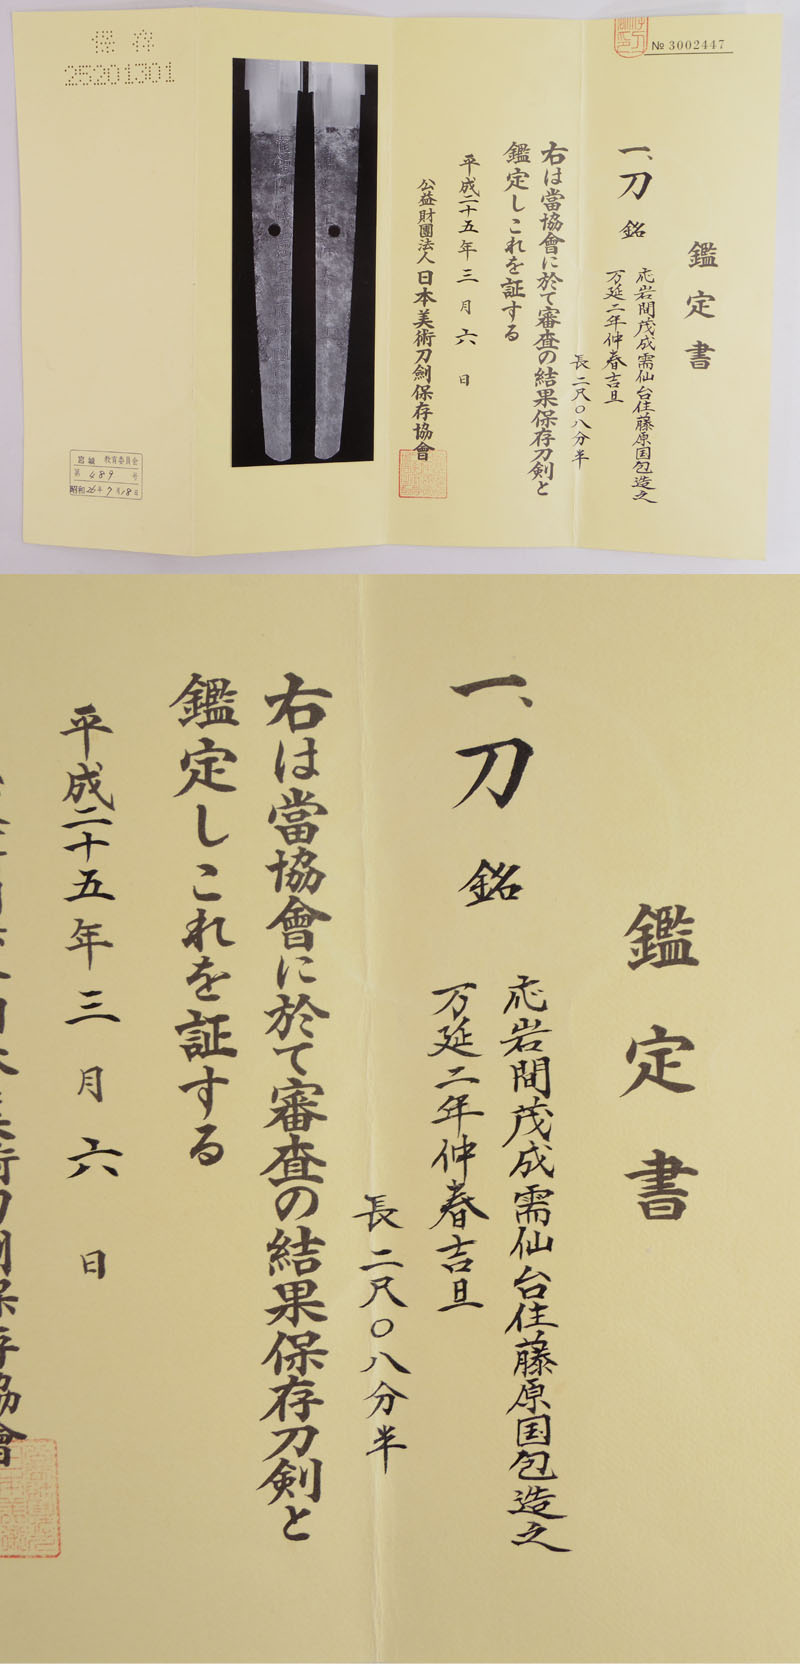 № 3002447
鑑定書
一、刀 銘
応岩間茂成需仙台住藤原国包造之
万延二年仲春吉旦
長二尺〇八分半
右は當協會に於て審査の結果保存刀剣と
鑑定しこれを証する
平成二十五年三月六日
公益財團法人 日本美術刀劍保存協會
保存
25201301
宮城 教育委員会
第 489 号
昭和26年7月18日
鑑定書
一、刀 銘
応岩間茂成需仙台住藤原国包造之
万延二年仲春吉旦
長二尺〇八分半
右は當協會に於て審査の結果保存刀剣と
鑑定しこれを証する
平成二十五年三月六日